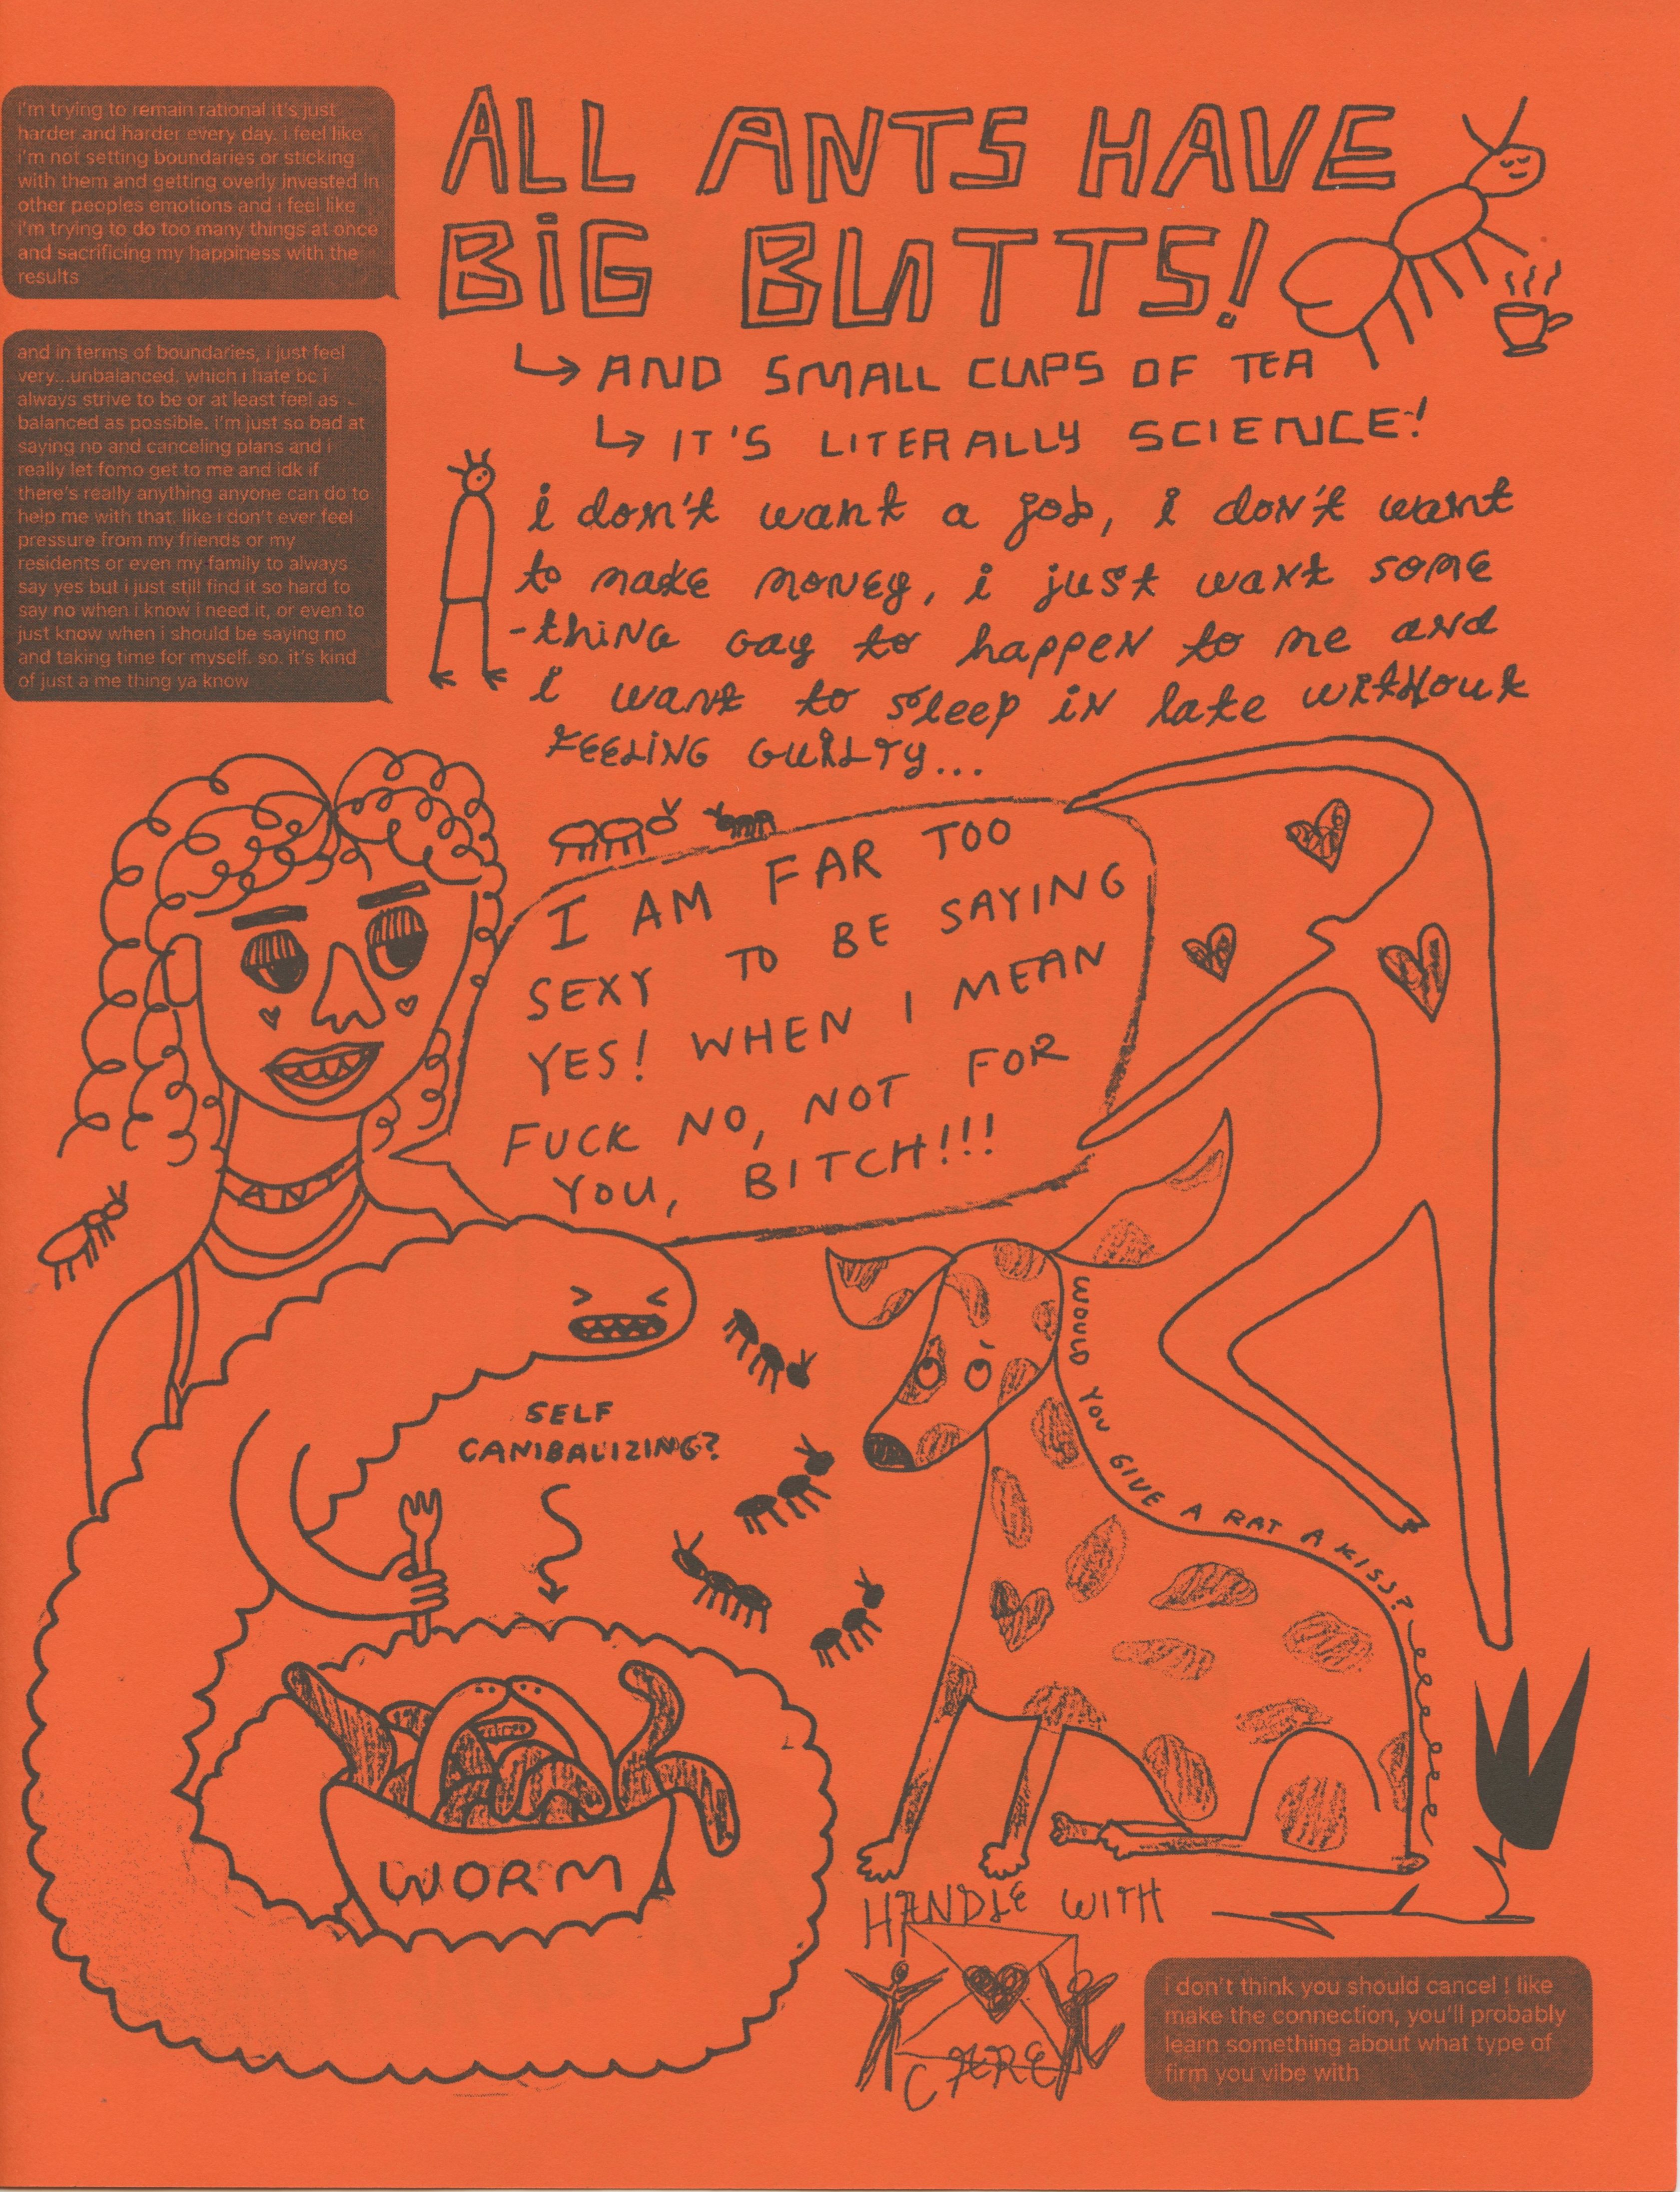 i'm trying to remain rational it's just
harder and harder every day. i feel like
i'm not setting boundaries or sticking
with them and getting overly invested in
other peoples emotions and i feel like
i'm trying to do too many things at once
and sacrificing my happiness with the
results
and in terms of boundaries, i just feel
very...unbalanced. which i hate bc i
always strive to be or at least feel as
balanced as possible. i'm just so bad at
saying no and canceling plans and i
really let fomo get to me and idk if
there's really anything anyone can do to
help me with that. like i don't ever feel
pressure from my friends or my
residents or even my family to always
say yes but i just still find it so hard to
say no when i know i need it, or even to
just know when i should be saying no
and taking time for myself. so. it's kind
of just a me thing ya know
ALL ANTS HAVE
BiG BUTTS!
AND SMALL CUPS OF TEA
IT'S LITERALLY SCIENCE!
i don't want a job, i don't want
to make money, i just want some
-thiNG gay to happeN to me and
i want to sleep iN late without
FEELiNG GUiLTy...
I AM FAR TOO
SEXY TO BE SAYING
YES! WHEN I MEAN
FUCK NO, NOT FOR
YOU, BITCH!!!
ANT
SELF
CANIBALIZING?
WOULD YOU GIVE A RAT A KISS?
WORM
HANDLE WITH
CARE
i don't think you should cancel ! like
make the connection, you'll probably
learn something about what type of
firm you vibe with